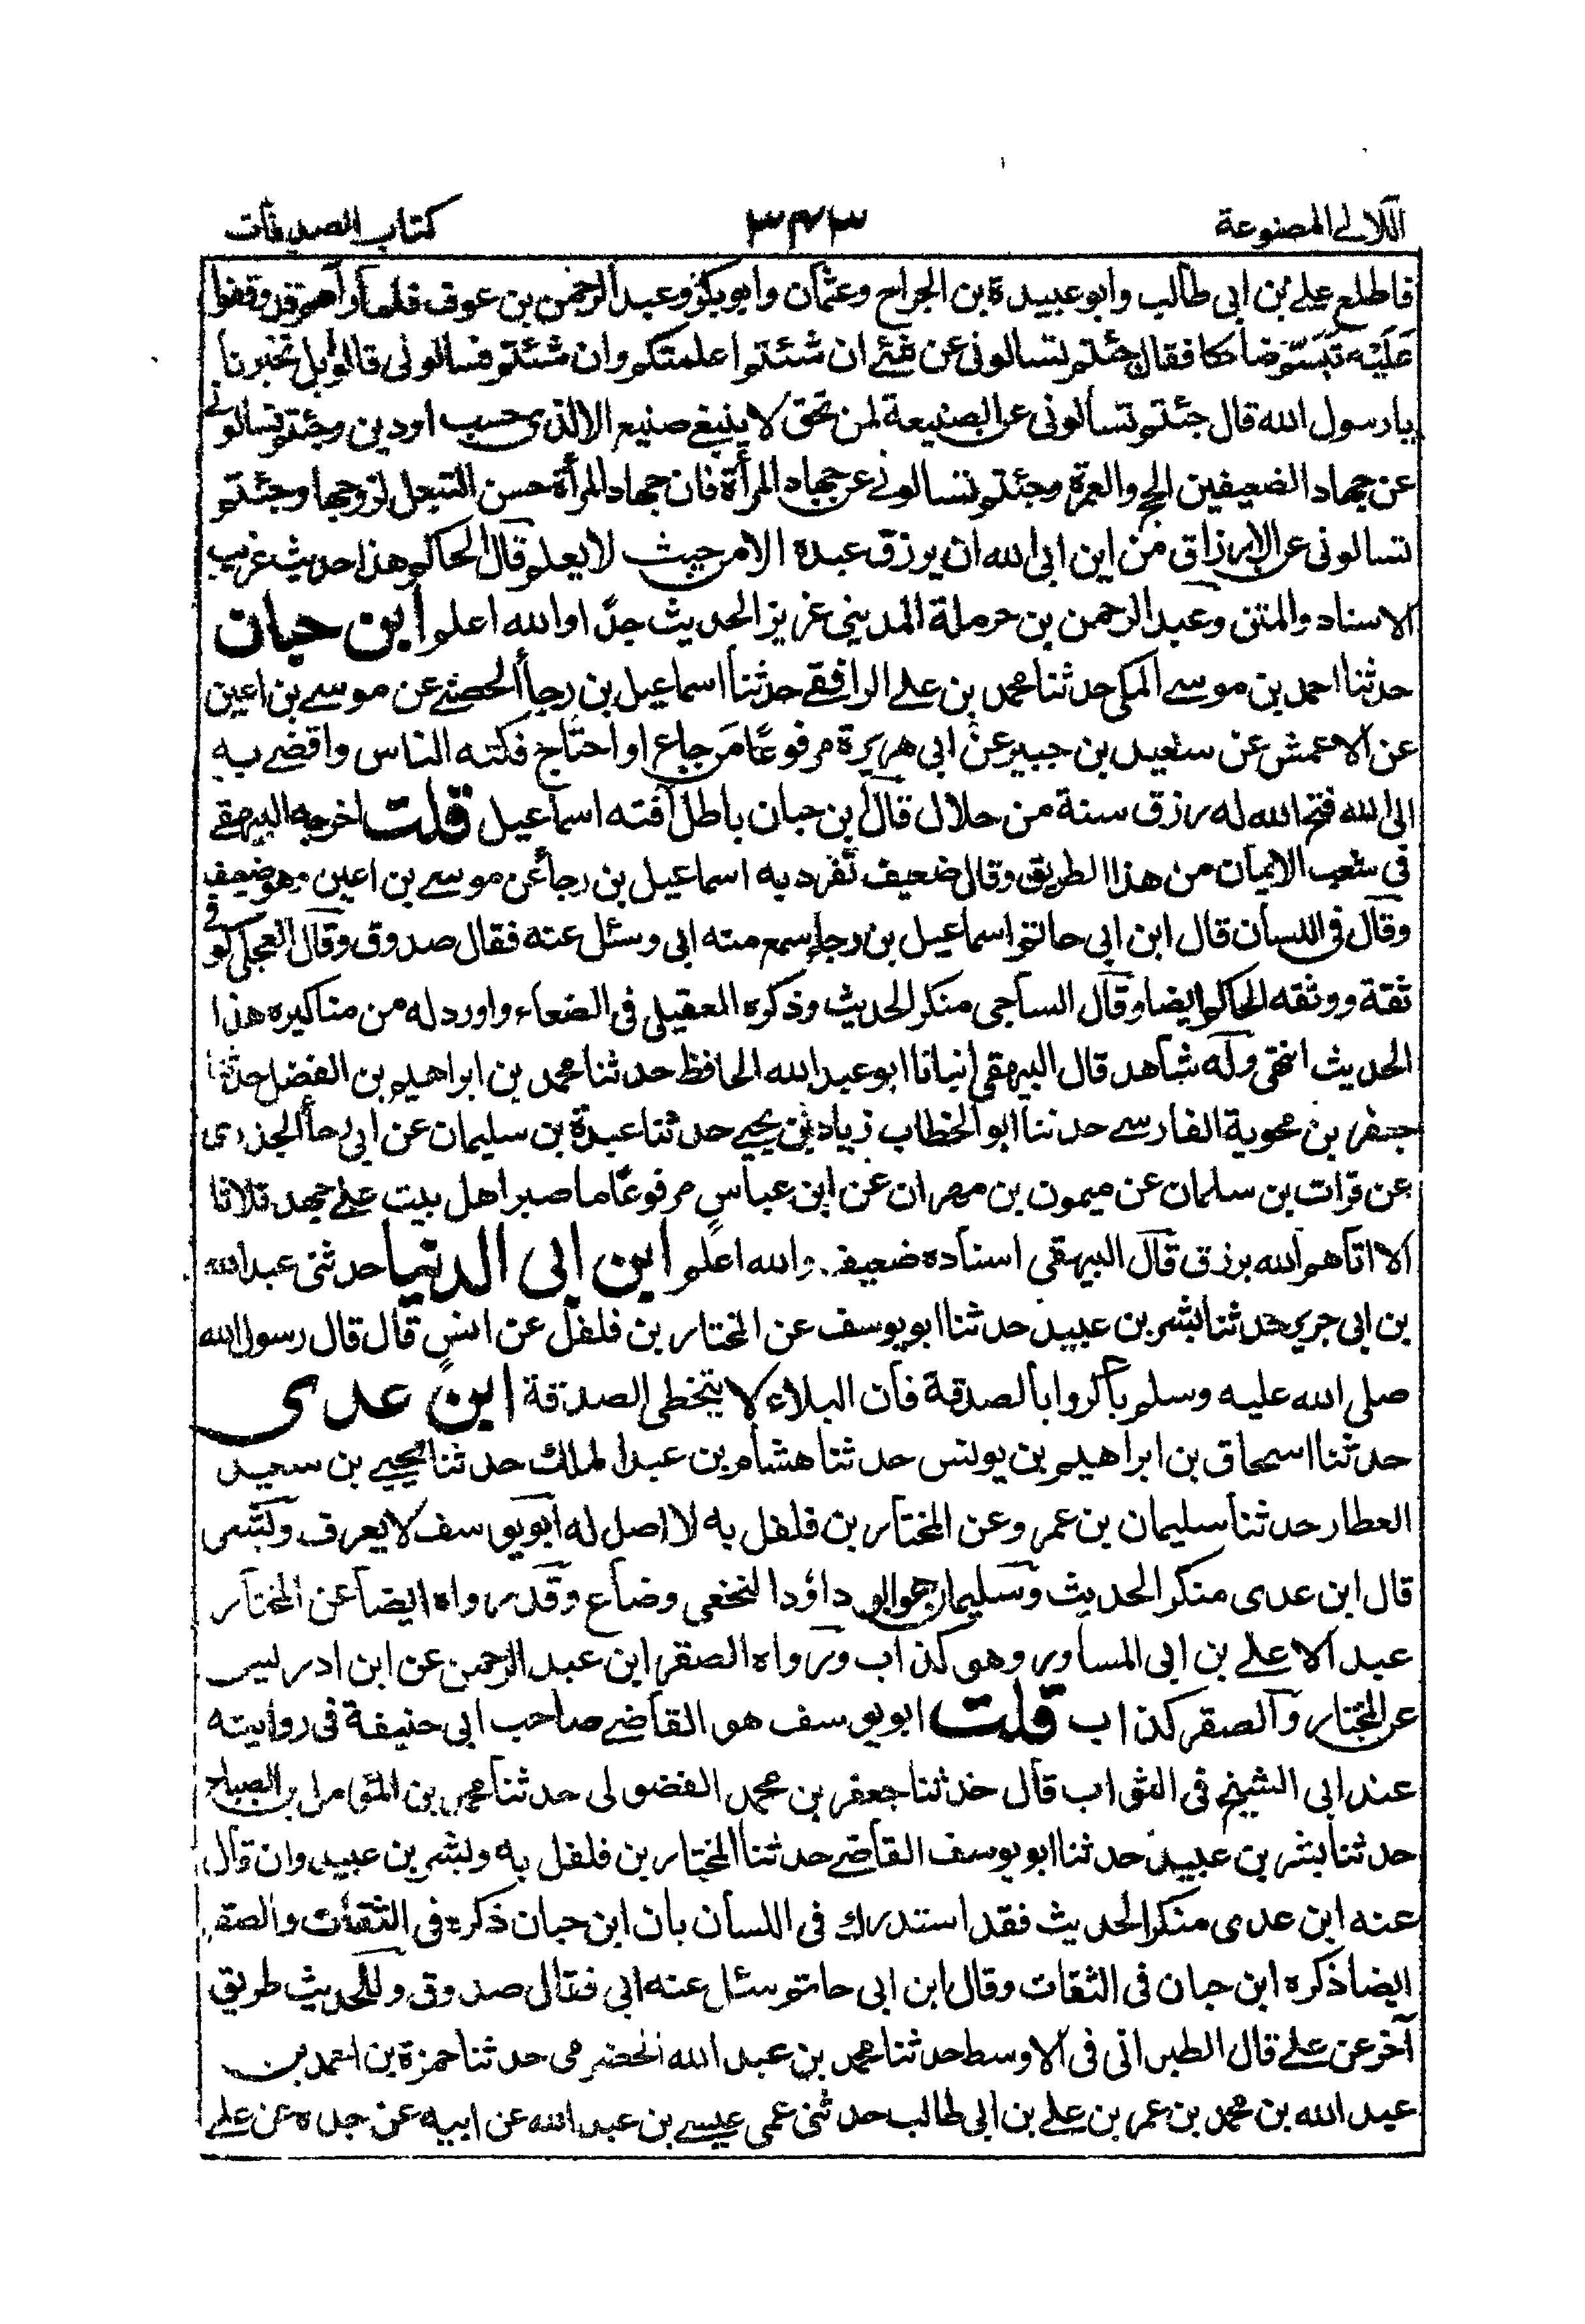 اللآلى المصنوعة
٣٤٣
كتاب الصدقات
فاطلع على بن ابى طالب وابو عبيدة بن الجراح وعثمان وابو بكر وعبد الرحمن بن عوف فلما رآهم قد وقفوا
عليه تبسم ضاحكا فقال جئتم تسالونى عن شئ ان شئتم اعلمتكم وان شئتم فسالونى قالوا بل تخبرنا
يا رسول الله قال جئتم تسألونى عن الصنيعة لمن تحق لا ينبغى صنيع الا لذى حسب او دين وجئتم تسالونى
عن جهاد الضعيفين الحج والعمرة وجئتم تسالونى عن جهاد المرأة فان جهاد المرأة حسن التبعل لزوجها وجئتم
تسالونى عن الارزاق من اين ابى الله ان يرزق عبده الا من حيث لا يعلم قال الحاكم هذا حديث غريب
الاسناد والمتن وعبد الرحمن بن حرملة المدينى عزيز الحديث جدا والله اعلم ابن حبان
حدثنا احمد بن موسى المكى حدثنا محمد بن على الرافقى حدثنا اسماعيل بن رجاء الحصنى عن موسى بن اعين
عن الاعمش عن سعيد بن جبير عن ابى هريرة مرفوعًا من جاع او احتاج فكتمه الناس وافضى به
الى الله فتح الله له رزق سنة من حلال قال بن حبان باطل آفته اسماعيل قلت اخرجه البيهقى
فى شعب الايمان من هذا الطريق وقال ضعيف تفرد به اسماعيل بن رجاء عن موسى بن اعين وهو ضعيف
وقال فى اللسان قال ابن ابى حاتم اسماعيل بن رجاء سمع منه ابى وسئل عنه فقال صدوق وقال العجلى كوفى
ثقة ووثقه الحاكم ايضا وقال الساجى منكر الحديث وذكره العقيلى فى الضعاء واورد له من مناكيره هذا
الحديث انتهى وله شاهد قال البيهقى انبانا ابو عبد الله الحافظ حدثنا محمد بن ابراهيم بن الفضل حدثنا
جعفر بن محوية الفارسى حدثنا ابو الخطاب زياد بن يحيى حدثنا عبدة بن سليمان عن ابى رجاء الجذرى
عن فرات بن سلمان عن ميمون بن مهران عن ابن عباسٍ مرفوعًا ما صبر اهل بيت على جهد ثلاثا
الا اتاهم الله برزق قال البيهقى اسناده ضعيف والله اعلم ابن ابى الدنيا حدثنى عبد الله
بن ابى جرى حدثنا بشر بن عبيد حدثنا ابو يوسف عن المختار بن فلفل عن انسٍ قال قال رسول الله
صلى الله عليه وسلم باكروا بالصدقة فان البلاء لا يتخطى الصدقة ابن عدى
حدثنا اسحاق بن ابراهيم بن يونس حدثنا هشام بن عبد الملك حدثنا يحيى بن سعيد
العطار حدثنا سليمان بن عمرو عن المختار بن فلفل به لا اصل له ابو يوسف لا يعرف وبشر
قال ابن عدى منكر الحديث وسليمان هو ابو داؤد النخعى وضاع وقد رواه ايضا عن المختار
عبد الاعلى بن ابى المساور وهو كذاب ورواه الصقر ابن عبد الرحمن عن ابن ادريس
عن المختار والصقر كذاب قلت ابو يوسف هو القاضى صاحب ابى حنيفة فى روايته
عند ابى الشيخ فى الثواب قال حدثنا جعفر بن محمد الفضولى حدثنا محمد بن المؤامل بن الصباح
حدثنا بشر بن عبيد حدثنا ابو يوسف القاضى حدثنا المختار بن فلفل به وبشر بن عبيد وان قال
عنه ابن عدى منكر الحديث فقد استدرك فى اللسان بان ابن حبان ذكره فى الثقات والصقر
ايضا ذكره ابن حبان فى الثقات وقال ابن ابى حاتم سئل عنه ابى فقال صدوق وللحديث طريق
آخر عن على قال الطبرانى فى الاوسط حدثنا محمد بن عبد الله الحضرمى حدثنا حمزة بن احمد بن
عبد الله بن محمد بن عمر بن على بن ابى طالب حدثنى عمى عيسى بن عبد الله عن ابيه عن جده عن على